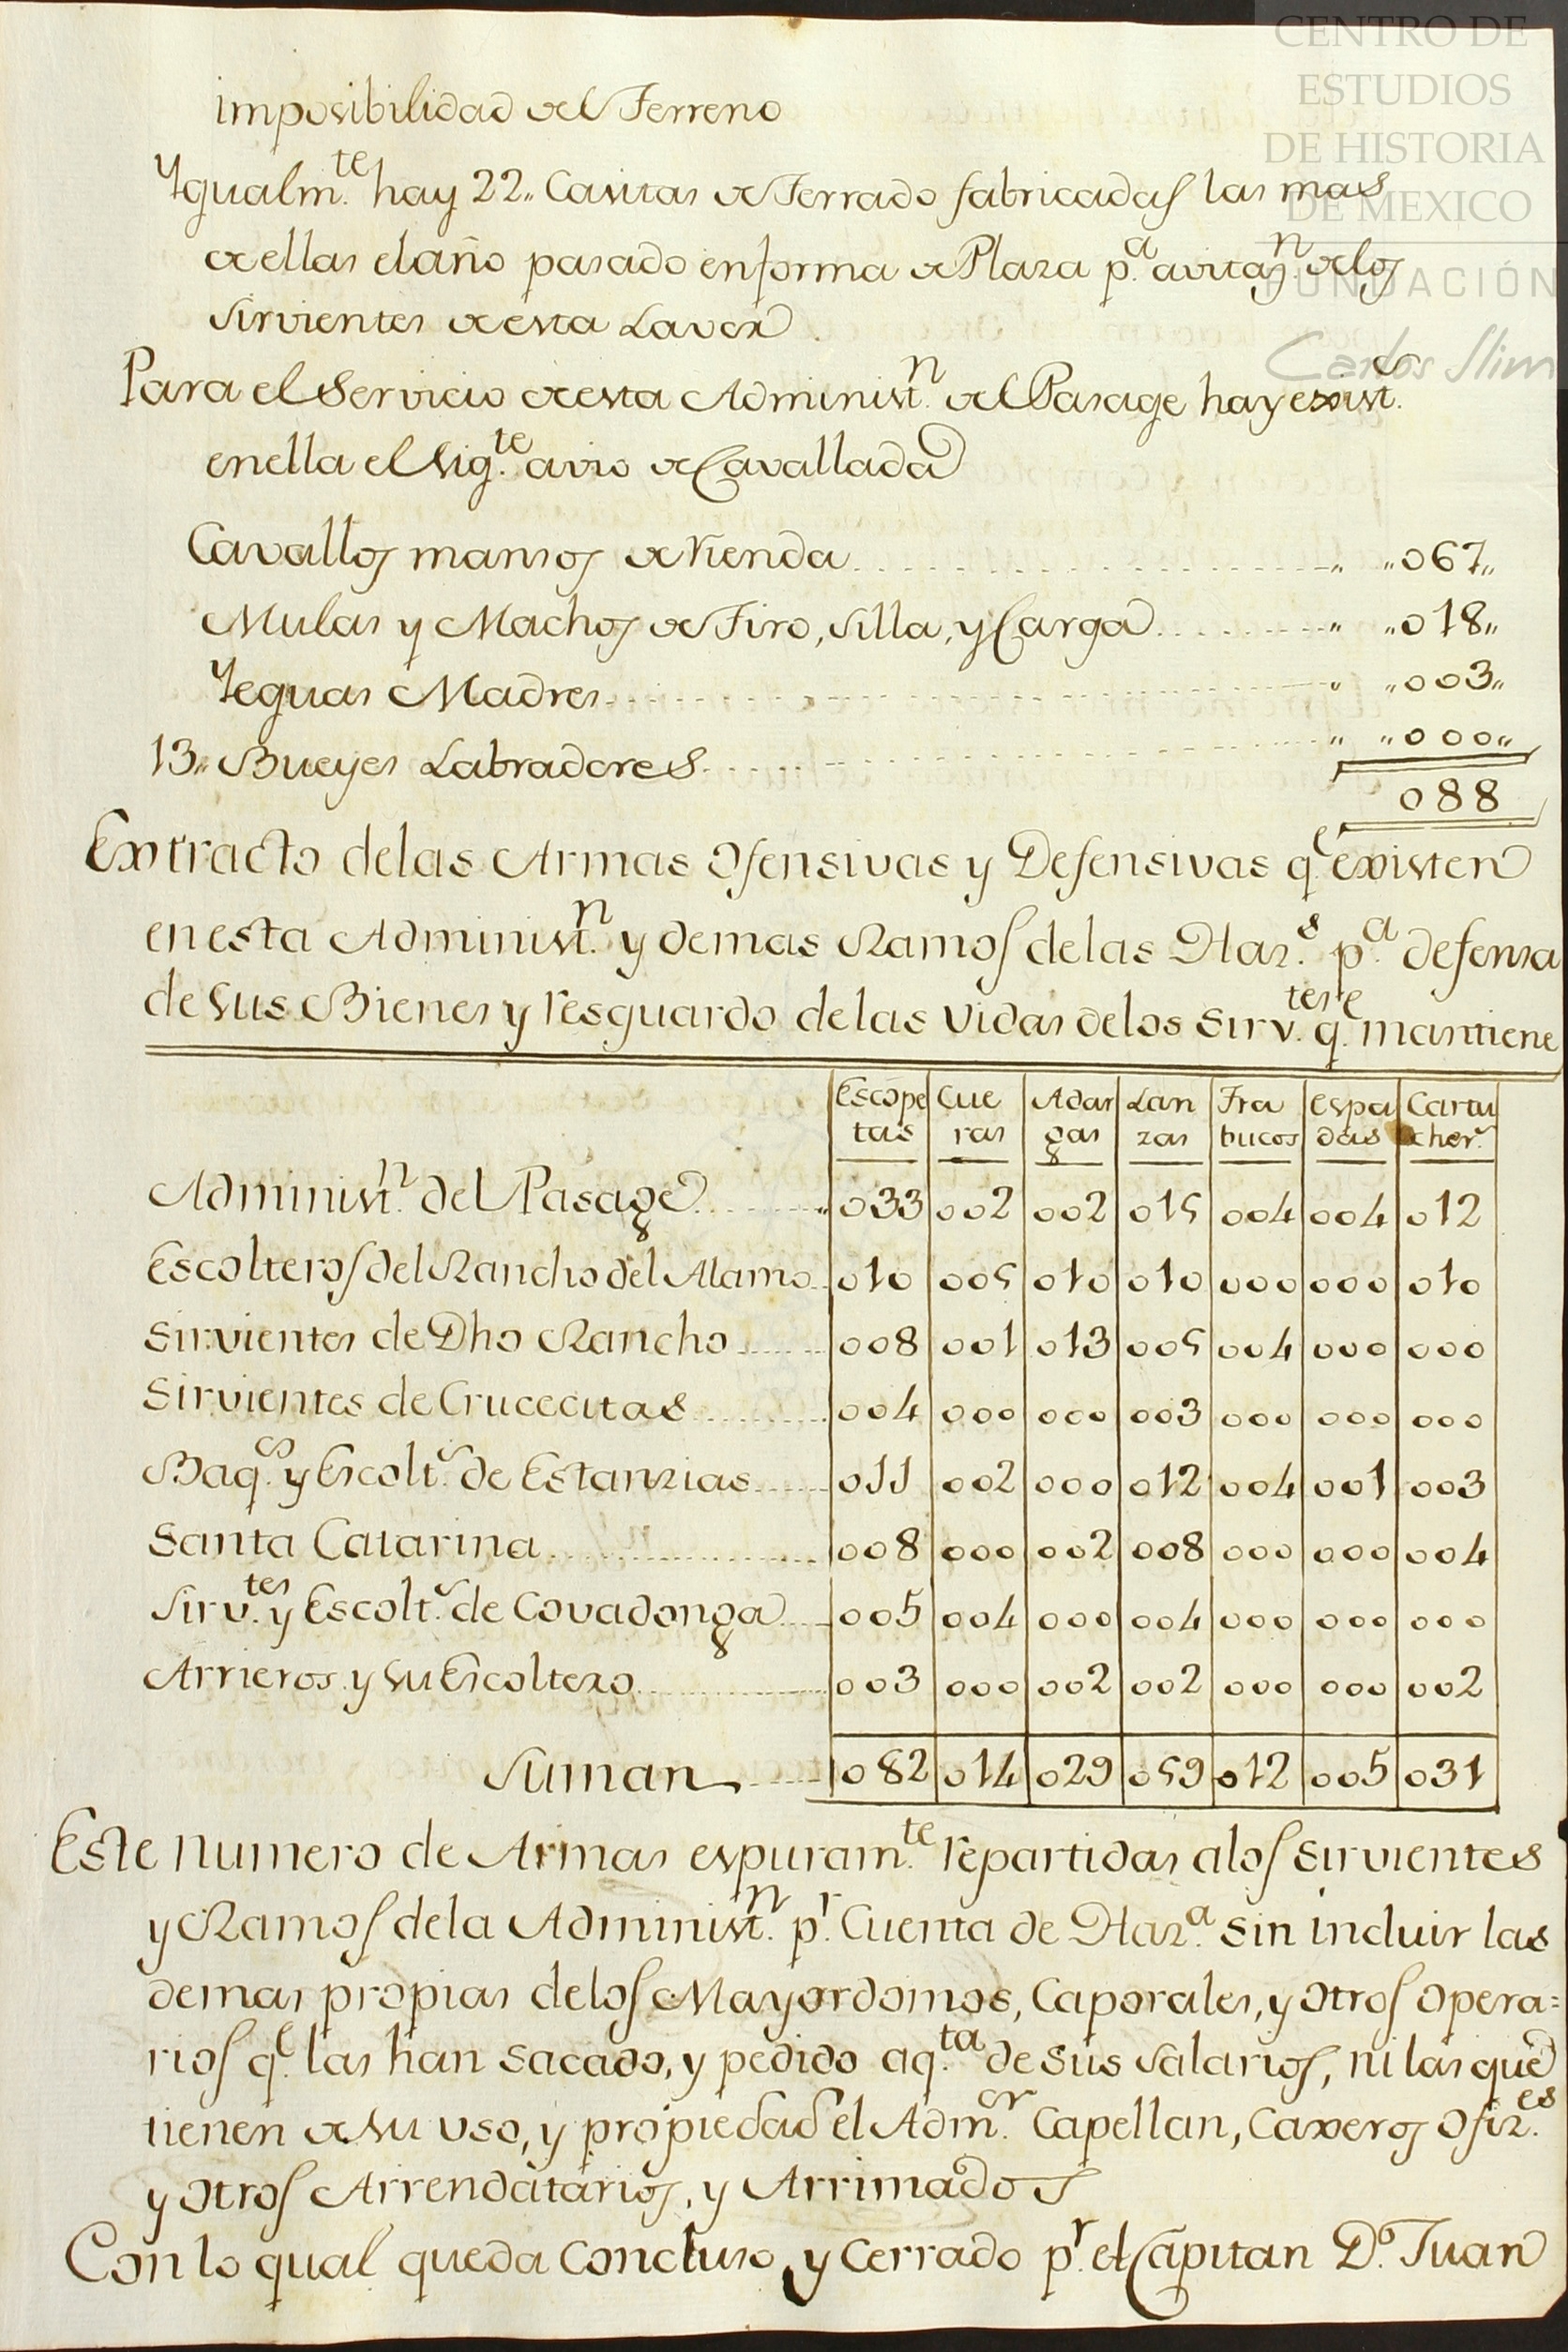 CENTRO DE
ESTUDIOS
DE HISTORIA
DE MEXICO
FUNDACIÓN
Carlos Slim
imposibilidad del Terreno
Ygualm.te hay 22,, Casitas de Terrado fabricadas las mas
de ellas el año pasado en forma de Plaza p.a avitaz.n de los
Sirvientes de esta Lavor.
Para el Servicio de esta Administ.n del Pasage hay exist.s
en ella el Sig.te avio de Cavallada
Cavallos mansos de rienda ,, ,,067,,
Mulas y Machos de Tiro, Silla, y Carga ,, ,,018,,
Yeguas Madres ,, ,,003,,
13,, Bueyes Labradores ,, ,,000,,
088
Extracto delas Armas Ofensivas y Defensivas q.e existen
en esta Administ.n y demas Ramos delas Haz.s p.a defensa
de sus Bienes y resguardo delas vidas delos Sirv.tes q.e mantiene
Escope tas | Cue ras | Adar gas | Lan zas | Tra bucos | Espa das | Cartu cher.s
Administ.n del Pasage ,, 033 | 002 | 002 | 015 | 004 | 004 | 012
Escolteros del Rancho del Alamo 010 | 005 | 010 | 010 | 000 | 000 | 010
Sirvientes de Dho Rancho 008 | 001 | 013 | 005 | 004 | 000 | 000
Sirvientes de Crucecitas 004 | 000 | 000 | 003 | 000 | 000 | 000
Baq.s y Escolt.s de Estanzias 011 | 002 | 000 | 012 | 004 | 001 | 003
Santa Catarina 008 | 000 | 002 | 008 | 000 | 000 | 004
Sirv.tes y Escolt.s de Covadonga 005 | 004 | 000 | 004 | 000 | 000 | 000
Arrieros y su Escoltero 003 | 000 | 002 | 002 | 000 | 000 | 002
Suman 082 | 014 | 029 | 059 | 012 | 005 | 031
Este numero de Armas es puram.te repartidas alos Sirvientes
y Ramos dela Administ.n p.r Cuenta de Haz.a sin incluir las
demas propias delos Mayordomos, Caporales, y otros opera=
rios q.e las han sacado, y pedido aq.ta de sus Salarios, ni las que
tienen de su uso, y propiedad el Adm.or Capellan, Caxeros Ofiz.es
y otros Arrendatarios, y Arrimados
Con lo qual queda concluso, y cerrado p.r el Capitan D.n Juan